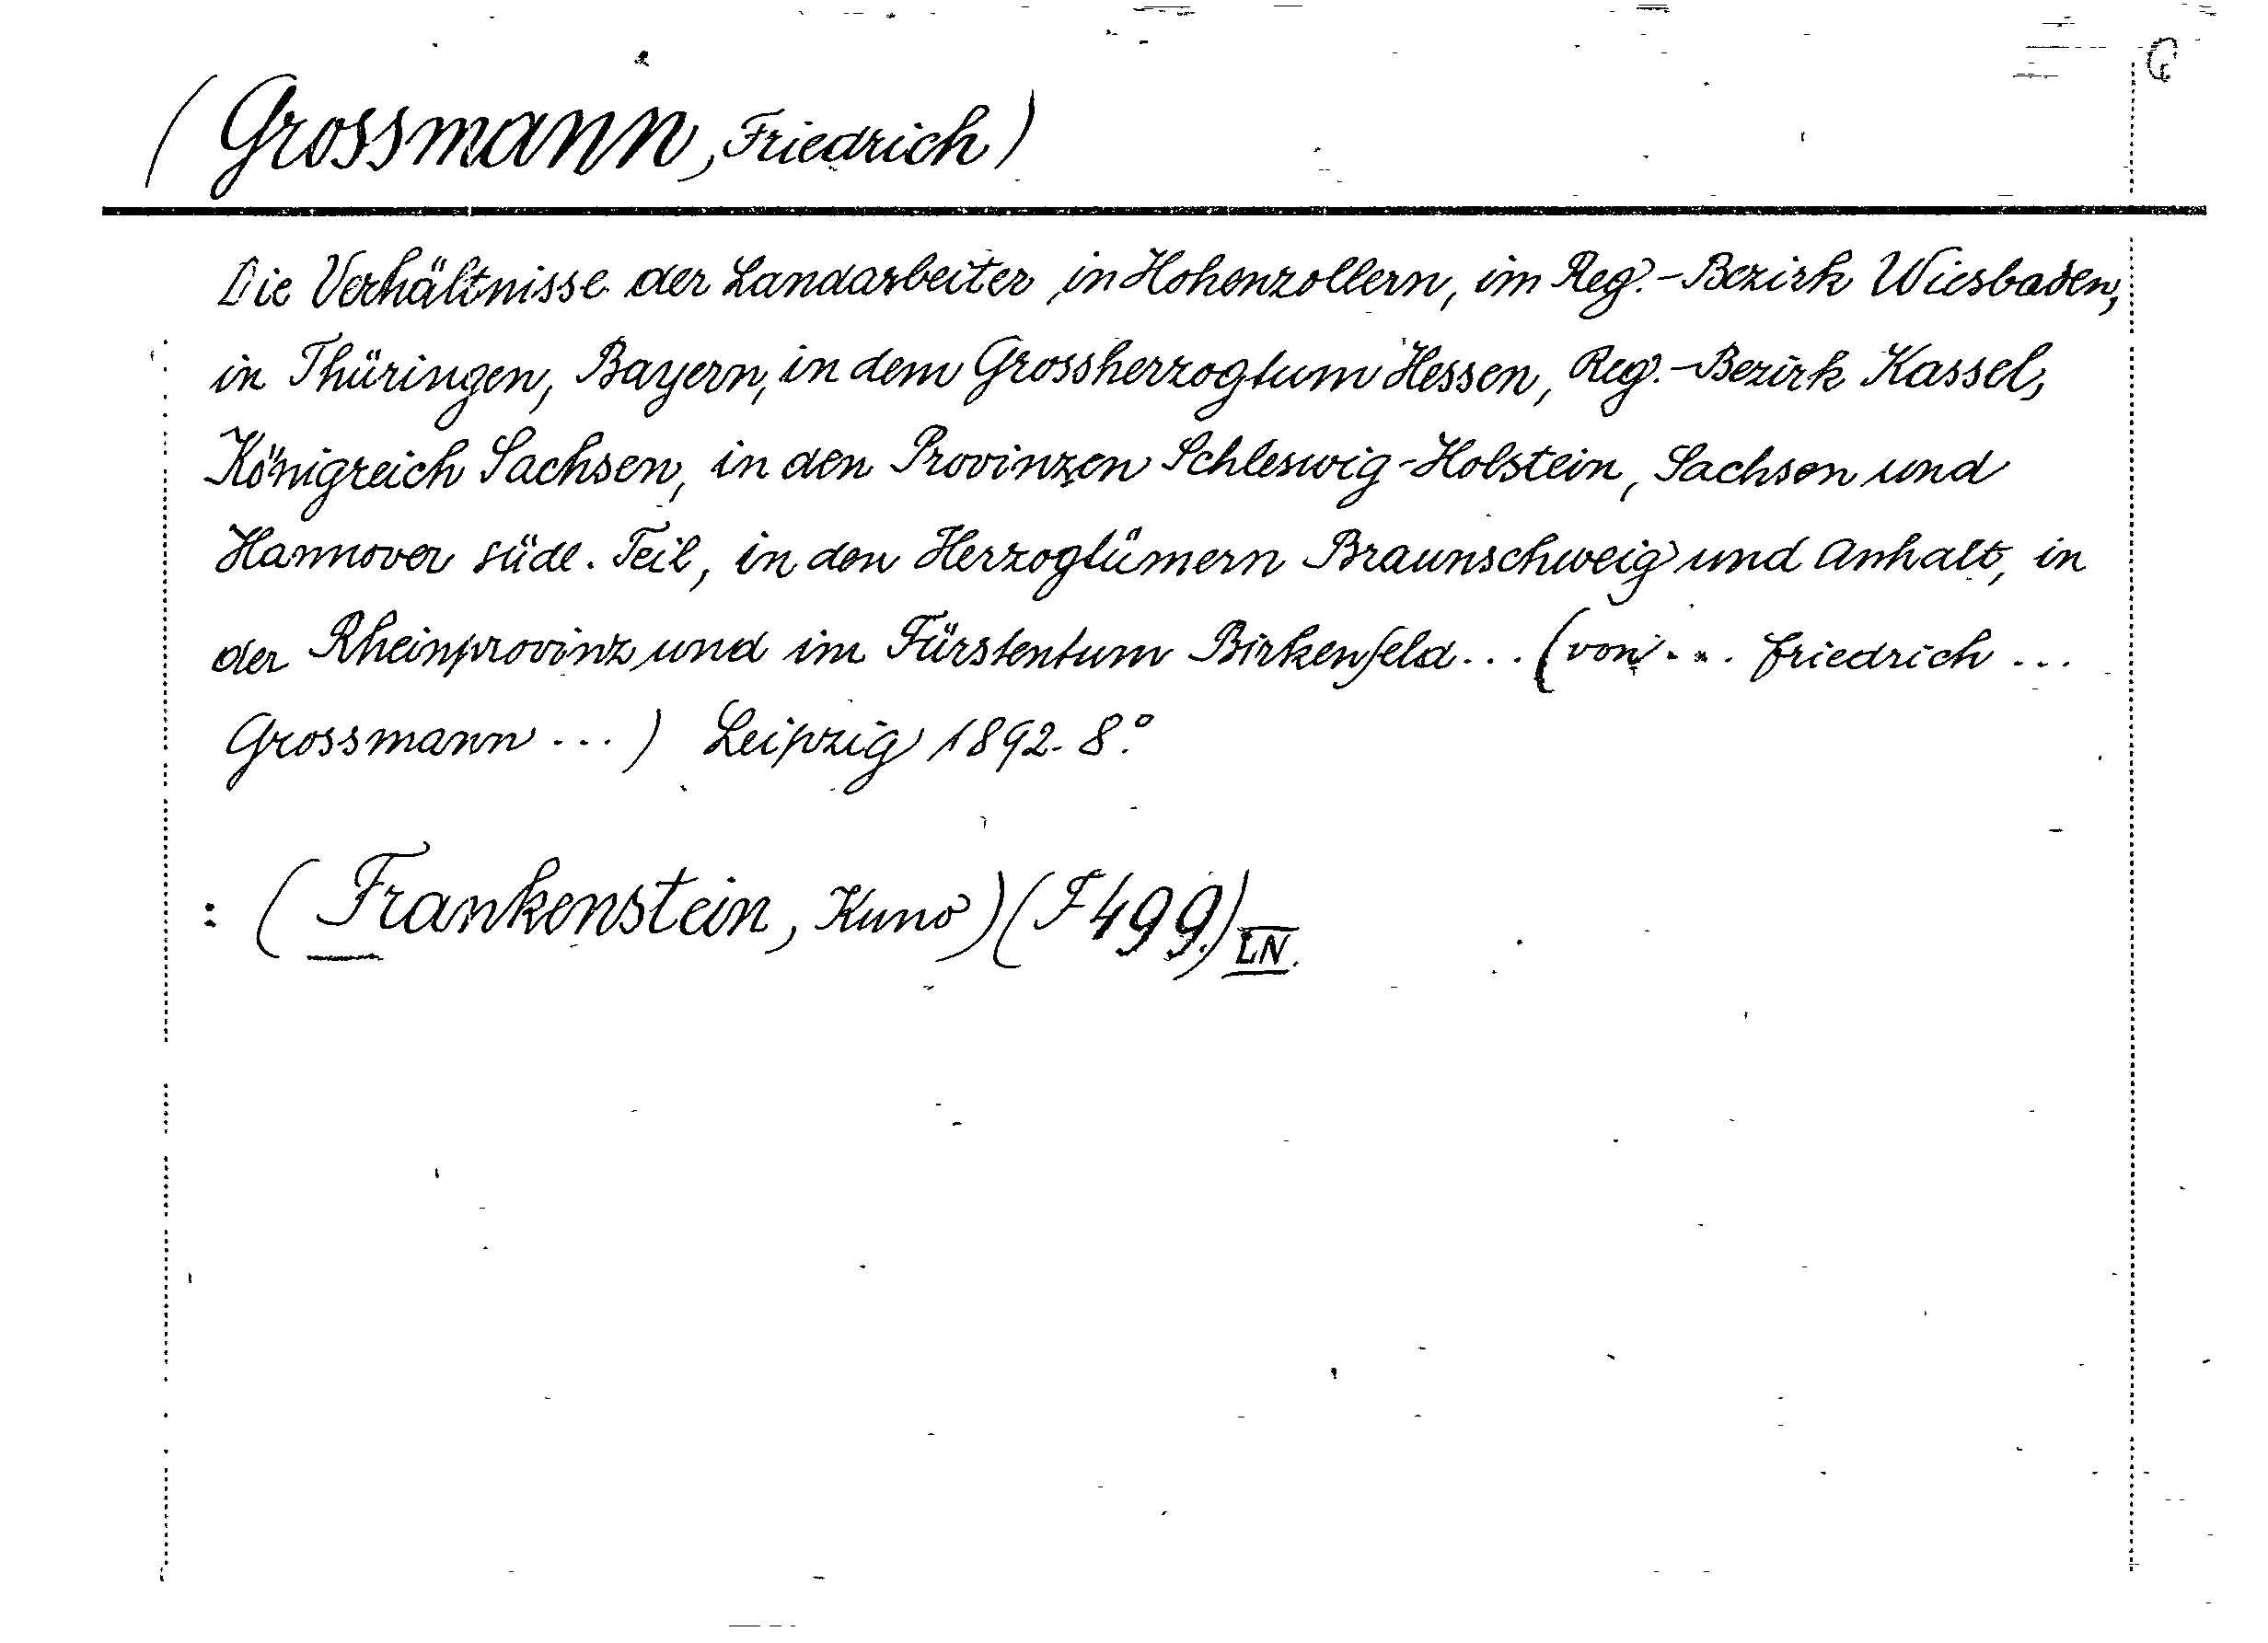 G
(Grossmann, Friedrich)
Die Verhältnisse der Landarbeiter in Hohenzollern, im Reg.-Bezirk Wiesbaden,
in Thüringen, Bayern, in dem Grossherzogtum Hessen, Reg.-Bezirk Kassel,
Königreich Sachsen, in den Provinzen Schleswig-Holstein, Sachsen und
Hannover südl. Teil, in den Herzogtümern Braunschweig und Anhalt, in
der Rheinprovinz und im Fürstentum Birkenfeld... (von... Friedrich ...
Grossmann ...) Leipzig 1892. 8°.
: (Frankenstein, Kuno) (F 499.) LN.